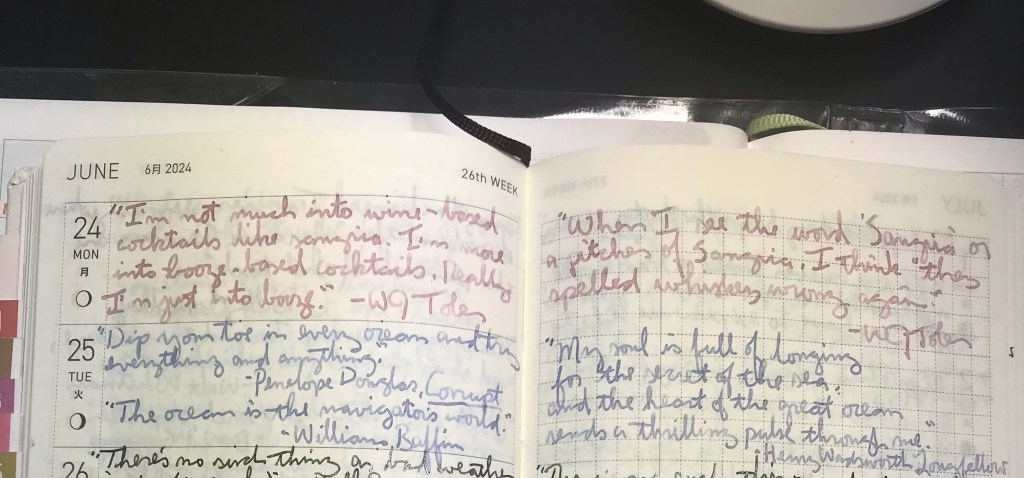 JUNE 6月 2024
26th WEEK
24
MON
月
"I'm not much into wine-based
cocktails like sangria. I'm more
into booze-based cocktails. Really
I'm just into booze." -WQ Toles
25
TUE
火
"Dip your toe in every ocean and try
everything and anything."
-Penelope Douglas, Corrupt
"The ocean is the navigator's world."
-Williams, Baffin
26
"There's no such thing as bad weather
"When I see the word 'Sangria' on
a pitcher of Sangria, I think "they
spelled whiskey wrong again."
"My soul is full of longing
for the secret of the sea,
and the heart of the great ocean
sends a thrilling pulse through me."
-Henry Wadsworth Longfellow